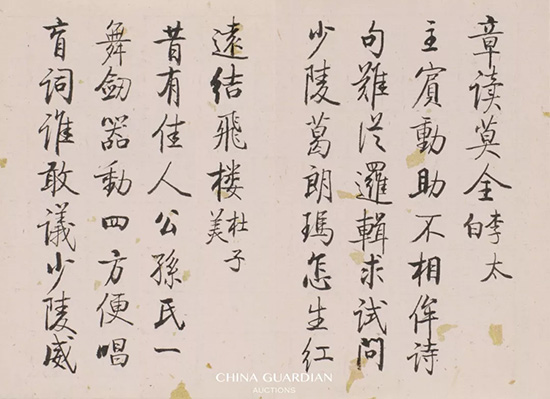 章读莫全李太白
主賓動助不相侔詩
句難從邏輯求試問
少陵葛朗瑪怎生红
遠結飛楼杜子美
昔有佳人公孫氏一
舞劍器動四方便唱
盲詞谁敢議少陵威
CHINA GUARDIAN
AUCTIONS